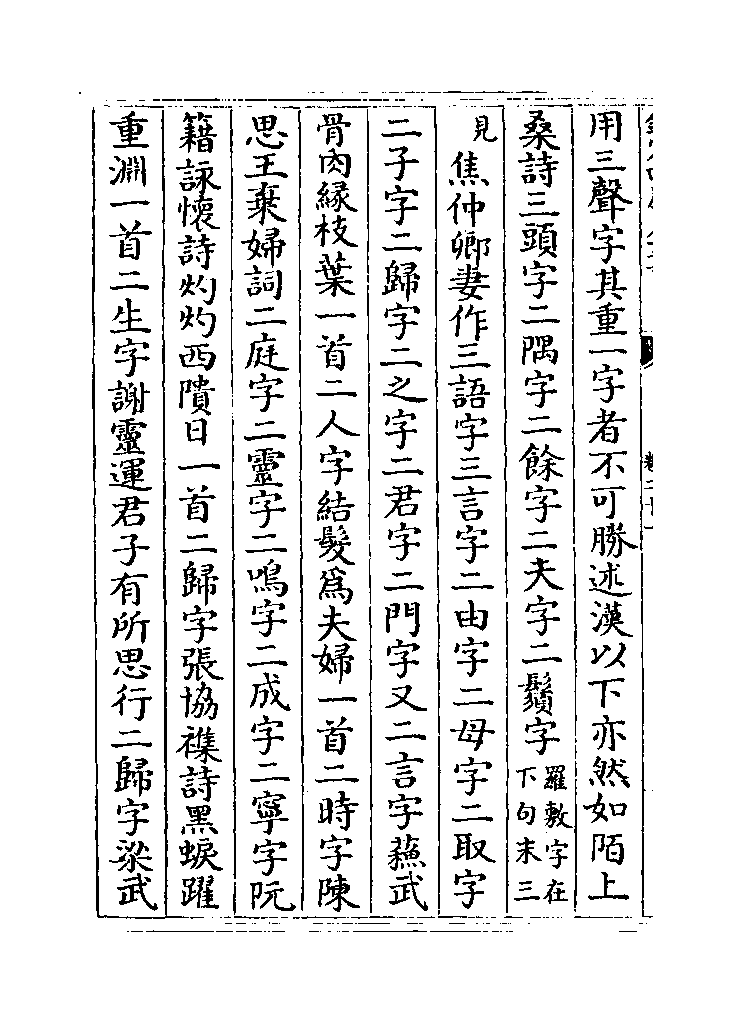 用三聲字其重一字者不可勝述漢以下亦然如陌上
桑詩三頭字二隅字二餘字二夫字二鬚字羅敷字在下句末三
見焦仲卿妻作三語字三言字二由字二母字二取字
二子字二歸字二之字二君字二門字又二言字蘇武
骨肉緣枝葉一首二人字結髮爲夫婦一首二時字陳
思王棄婦詞二庭字二靈字二鳴字二成字二寧字阮
籍詠懷詩灼灼西隤日一首二歸字張協襍詩黑蜧躍
重淵一首二生字謝靈運君子有所思行二歸字梁武